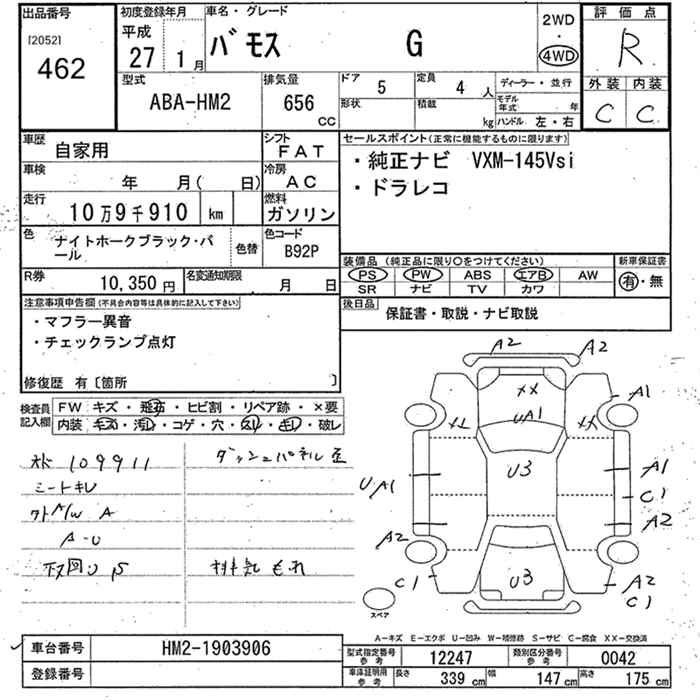 出品番号
[2052]
462
初度登録年月
平成
27 1月
車名・グレード
バモス G
2WD
・
4WD
評価点
R
外装 内装
C C
型式
ABA-HM2
排気量
656 cc
ドア 5
形状
定員 4 人
積載 kg
ディーラー・並行
モデル年式 年
ハンドル 左・右
車歴
自家用
シフト
FAT
車検
年 月( 日)
冷房
AC
走行
10万9千910 km
燃料
ガソリン
色
ナイトホークブラック・パール
色替
色コード
B92P
R券
10,350 円
名変通知期限
月 日
セールスポイント(正常に機能するものに限ります)
・純正ナビ VXM-145Vsi
・ドラレコ
装備品 (純正品に限り〇をつけてください)
PS PW ABS エアB AW
SR ナビ TV カワ
新車保証書
有・無
後日品
保証書・取説・ナビ取説
注意事項申告欄(不具合内容等は具体的に記入して下さい)
・マフラー異音
・チェックランプ点灯
修復歴 有〔箇所 〕
検査員記入欄
FW キズ・飛石・ヒビ割・リペア跡・×要
内装 キズ・汚レ・コゲ・穴・スレ・キレ・破レ
109911
シートキレ
A
A-U
ダッシュパネル歪
排気もれ
A2 A2
XX
UA1
XX XX
A1
U3
UA1
A1
C1
A2
A2
C1
U3
A2
C1
スペア
A-キズ E-エクボ U-凹み W-補修跡 S-サビ C-腐食 XX-交換済
車台番号 HM2-1903906
登録番号
型式指定番号 参考 12247
類別区分番号 参考 0042
車庫証明用 参考 長さ 339 cm 幅 147 cm 高さ 175 cm